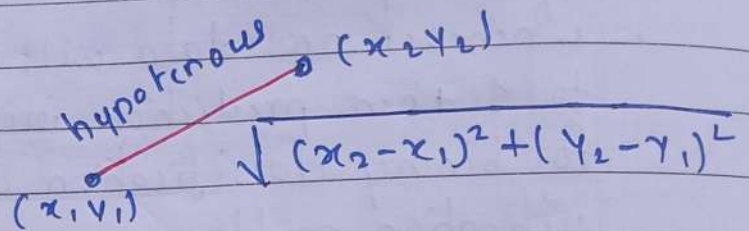 hypotenous
(x₂ y₂)
√(x₂-x₁)²+(y₂-y₁)²
(x₁ y₁)